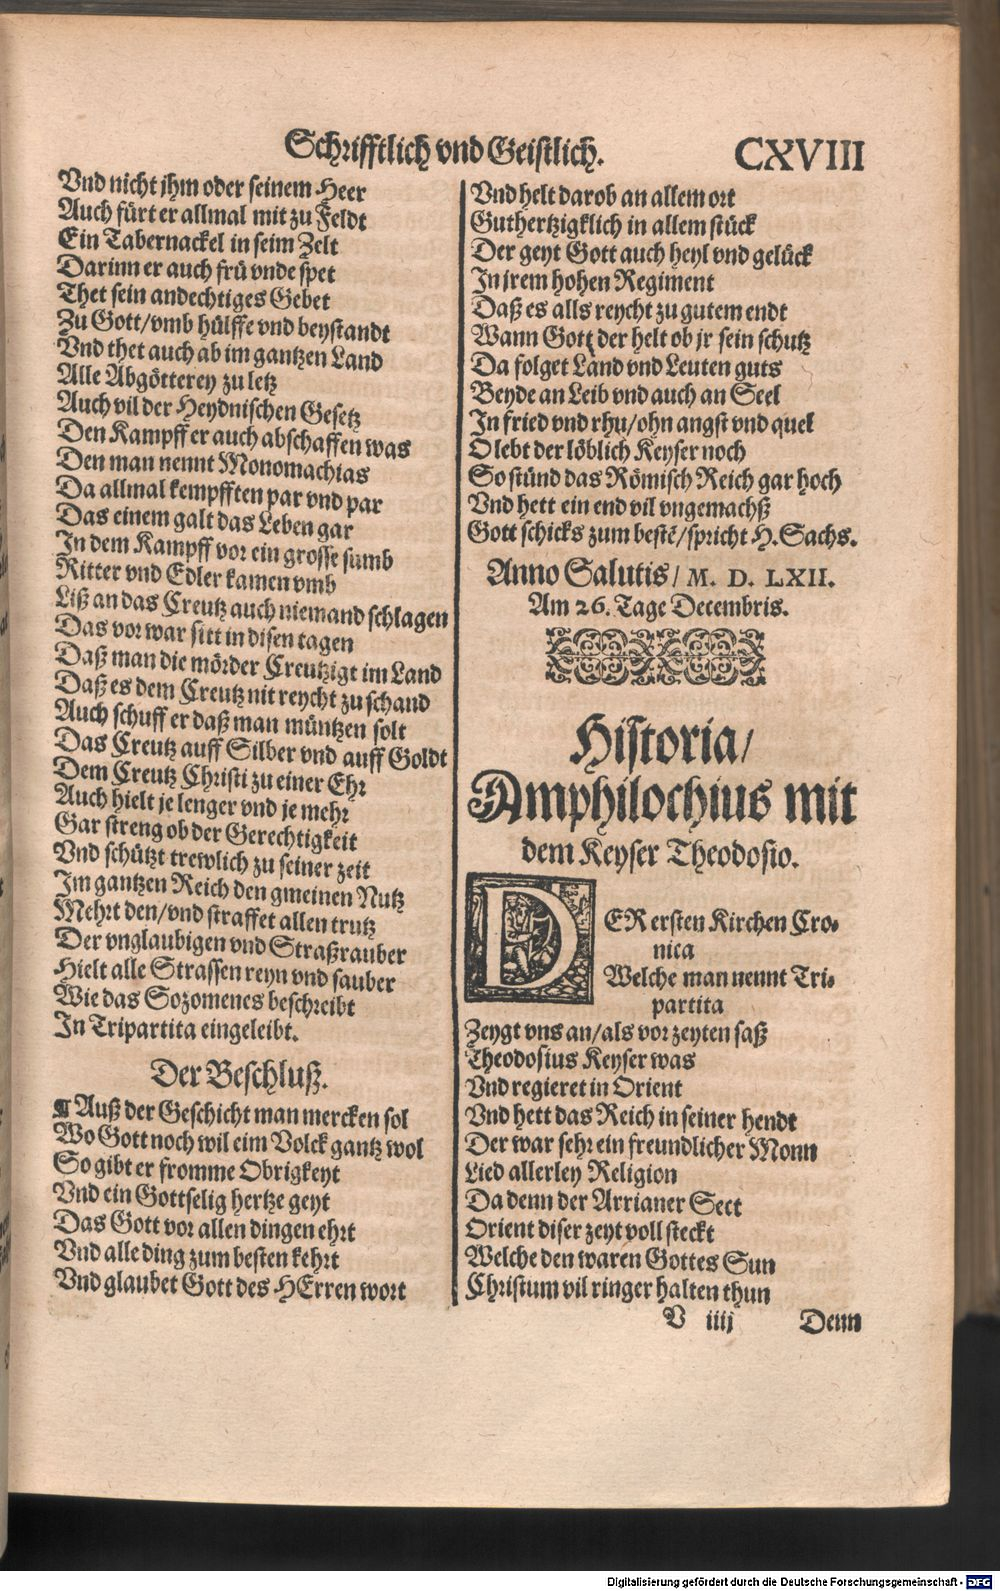 Schrifftlich vnd Geistlich. CXVIII
Vnd nicht jhm oder seinem Heer
Auch fürt er allmal mit zu Feldt
Ein Tabernackel in seim Zelt
Darinn er auch frü vnde spet
Thet sein andechtiges Gebet
Zu Gott/vmb hülffe vnd beystandt
Vnd thet auch ab im gantzen Land
Alle Abgötterey zu letz
Auch vil der Heydnischen Gesetz
Den Kampff er auch abschaffen was
Den man nennt Monomachias
Da allmal kempfften par vnd par
Das einem galt das Leben gar
In dem Kampff vor ein grosse sumb
Ritter vnd Edler kamen vmb
Liß an das Creutz auch niemand schlagen
Das vor war sitt in disen tagen
Daß man die mörder Creutzigt im Land
Daß es dem Creutz nit reycht zu schand
Auch schuff er daß man müntzen solt
Das Creutz auff Silber vnd auff Goldt
Dem Creutz Christi zu einer Ehr
Auch hielt je lenger vnd je mehr
Gar streng ob der Gerechtigkeit
Vnd schützt trewlich zu seiner zeit
Im gantzen Reich den gmeinen Nutz
Mehrt den/vnd straffet allen trutz
Der vnglaubigen vnd Straßrauber
Hielt alle Strassen reyn vnd sauber
Wie das Sozomenes beschreibt
In Tripartita eingeleibt.
Der Beschluß.
¶ Auß der Geschicht man mercken sol
Wo Gott noch wil eim Volck gantz wol
So gibt er fromme Obrigkeyt
Vnd ein Gottselig hertze geyt
Das Gott vor allen dingen ehrt
Vnd alle ding zum besten kehrt
Vnd glaubet Gott des HErren wort
Vnd helt darob an allem ort
Guthertzigklich in allem stück
Der geyt Gott auch heyl vnd gelück
In jrem hohen Regiment
Daß es alls reycht zu gutem endt
Wann Gott der helt ob jr sein schutz
Da folget Land vnd Leuten guts
Beyde an Leib vnd auch an Seel
In fried vnd rhu/ohn angst vnd quel
O lebt der löblich Keyser noch
So stünd das Römisch Reich gar hoch
Vnd hett ein end vil vngemachß
Gott schicks zum bestē/spricht H. Sachs.
Anno Salutis/ M. D. LXII.
Am 26. Tage Decembris.
Historia/
Amphilochius mit
dem Keyser Theodosio.
DER ersten Kirchen Cro-
nica
Welche man nennt Tri-
partita
Zeygt vns an/als vor zeyten saß
Theodosius Keyser was
Vnd regieret in Orient
Vnd hett das Reich in seiner hendt
Der war sehr ein freundlicher Monn
Lied allerley Religion
Da denn der Arrianer Sect
Orient diser zeyt voll steckt
Welche den waren Gottes Sun
Christum vil ringer halten thun
V iiij Denn
Digitalisierung gefördert durch die Deutsche Forschungsgemeinschaft - DFG